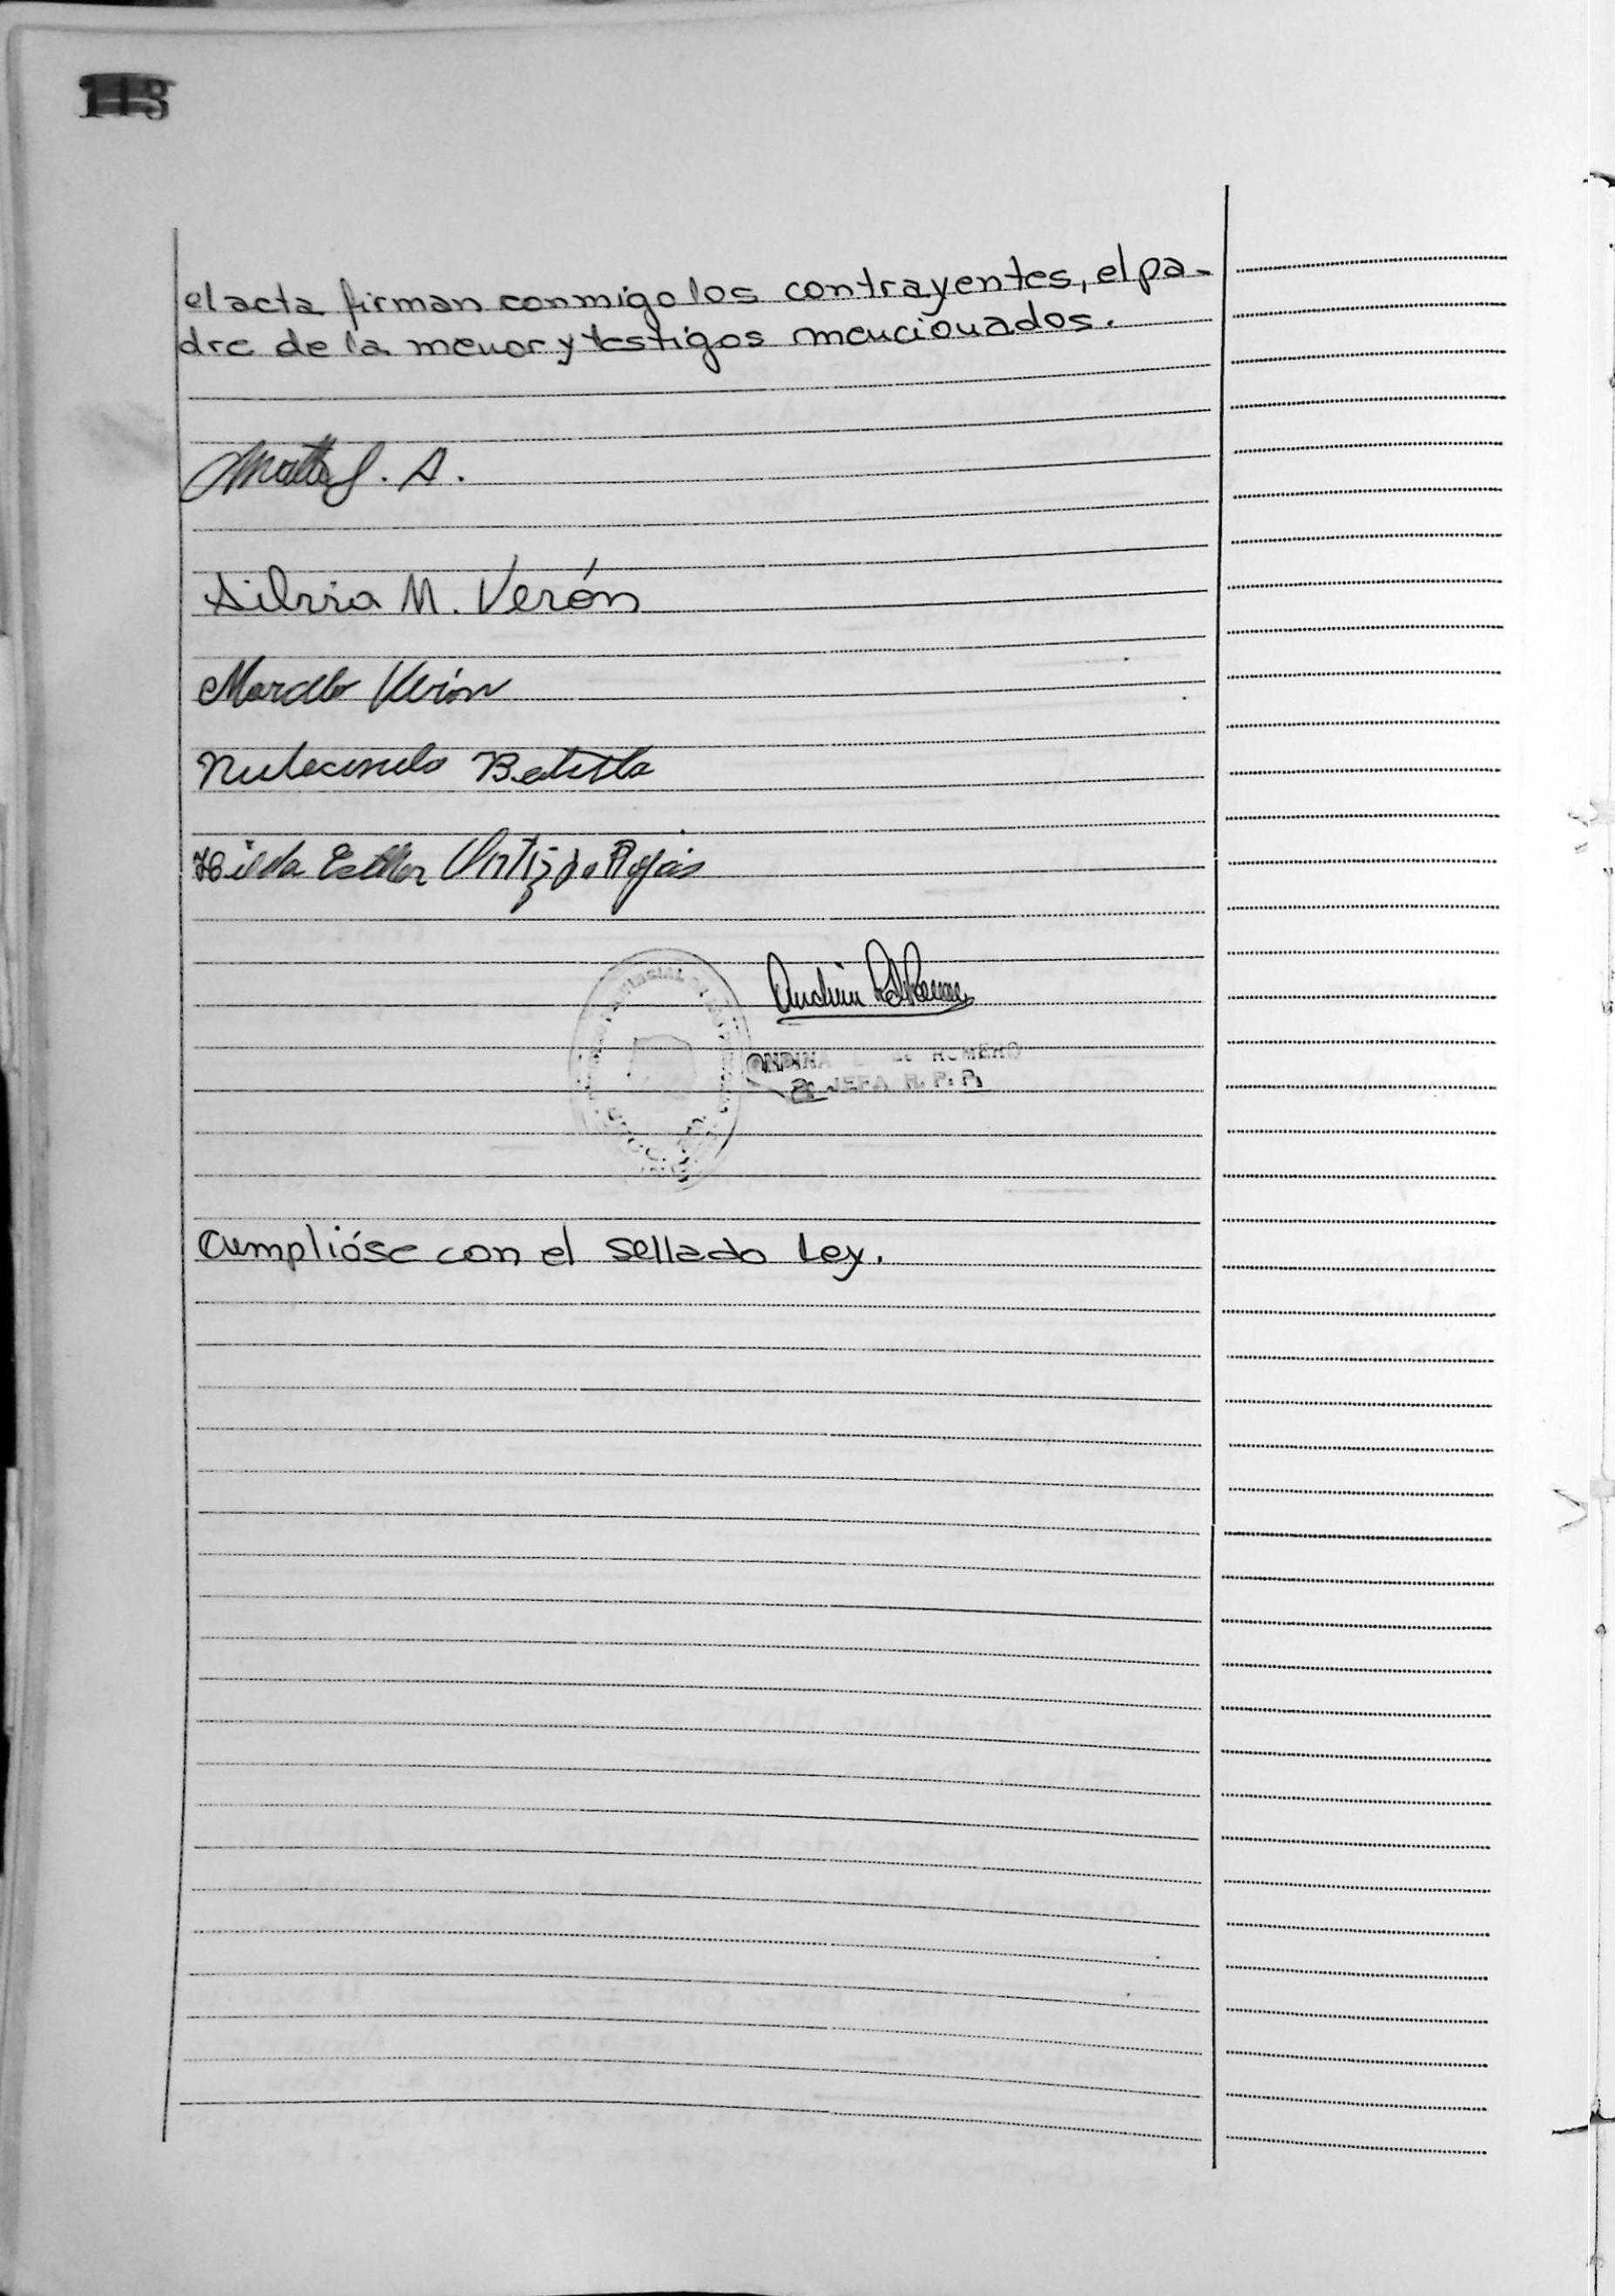 113
el acta firman conmigo los contrayentes, el pa-
dre de la menor y testigos mencionados.
S. A.
Silvia M. Verón
Marcelo Verón
Batista
Hilda Esther Ortiz de Rojas
ONDINA ROMERO
JEFA R. P. P.
Cumplióse con el sellado Ley.